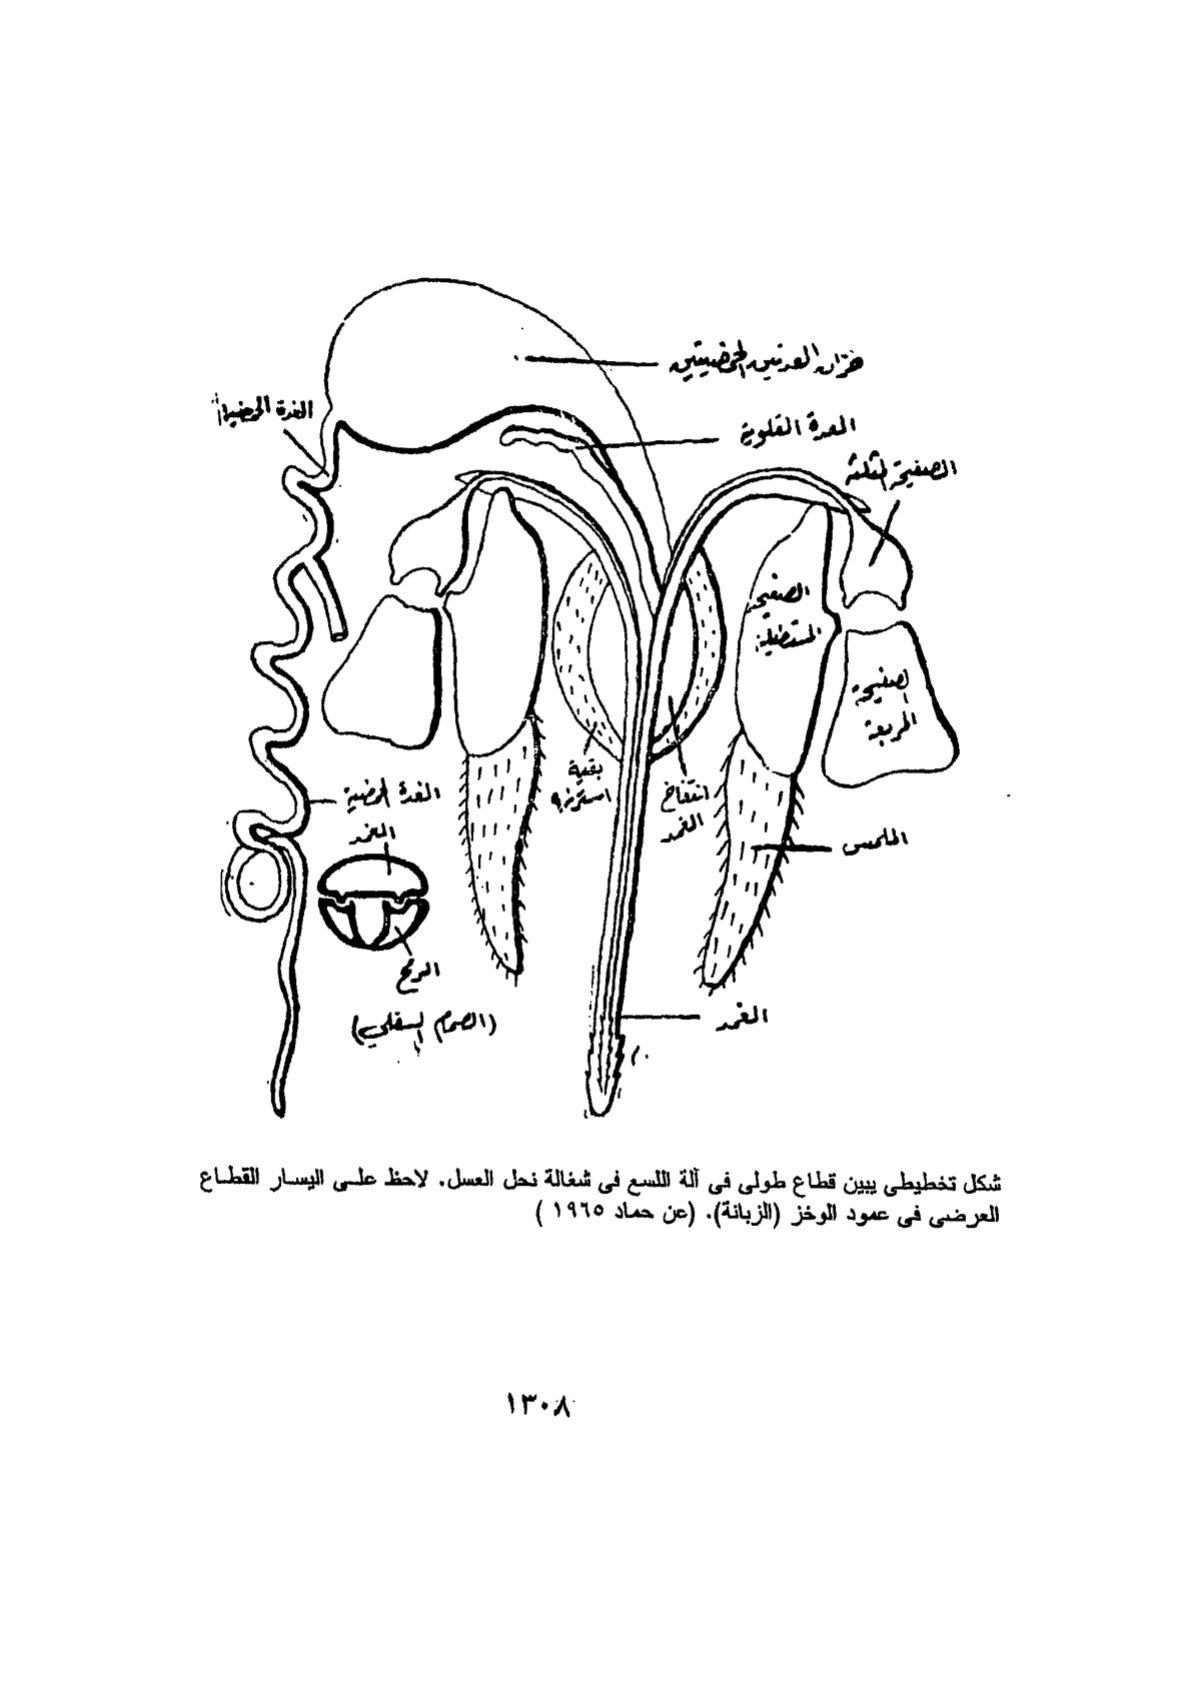 خزان الغدتين الحمضيتين
الغدة الحمضية
الغدة القلوية
الصفيحة المثلثة
الصفيحة
المستطيلة
الصفيحة
المربعة
بقية
استرنه ٩
انتفاخ
الغمد
الغدة الحمضية
الغمد
الملمس
الرمح
(الصمام السفلي)
الغمد
شكل تخطيطى يبين قطاع طولى فى آلة اللسع فى شغالة نحل العسل. لاحظ على اليسار القطاع
العرضى فى عمود الوخز (الزبانة). (عن حماد ١٩٦٥ )
١٣٠٨